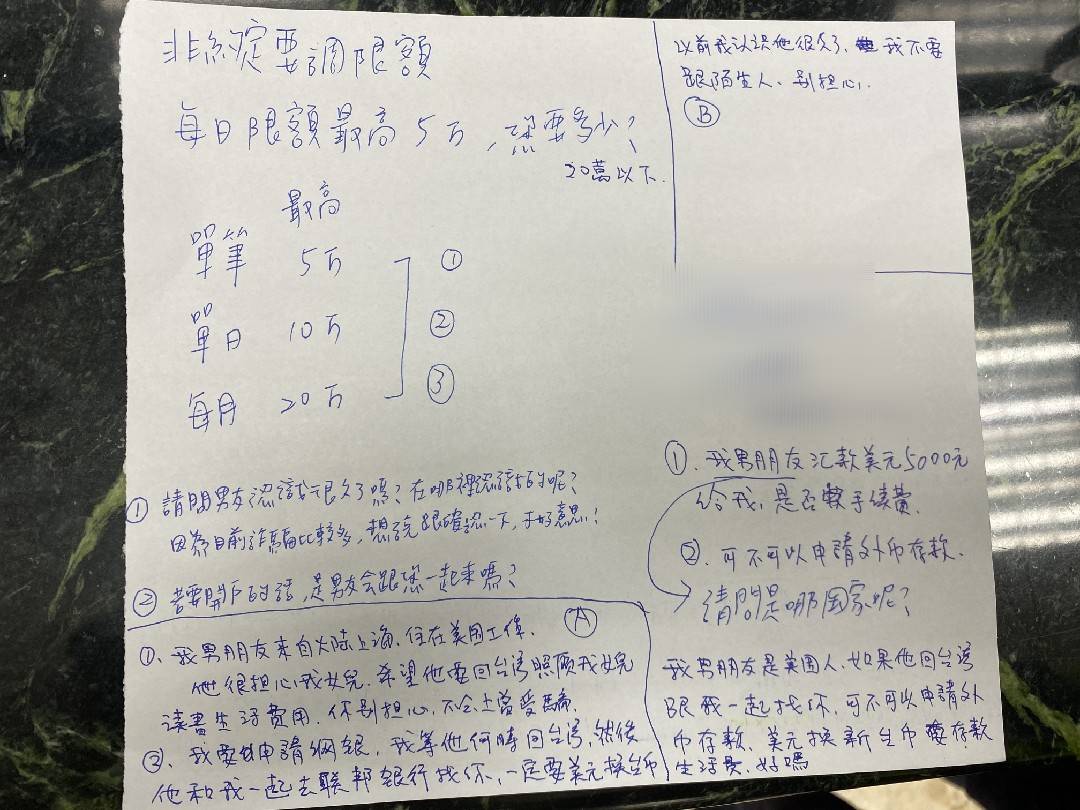 非約定要調限額
每日限額最高5万,您要多少?
20萬以下.
最高
單筆 5万 ①
單日 10万 ②
每月 20万 ③
① 請問男友認識很久了嗎?在哪裡認識的呢?
因為目前詐騙比較多,想說跟確認一下,不好意思!
② 若要開戶的話,是男友会跟您一起來嗎?
Ⓐ
①、我男朋友來自大陸上海.住在美国工作.
他很担心我女兒.希望他要回台湾照顧我女兒
讀書生活費用.你别担心,不会上當受騙.
②、我要申請網銀,我等他何時回台湾,然後
他和我一起去聯邦銀行找你,一定要美元換台币
以前我认识他很久了,我不要
跟陌生人、别担心.
Ⓑ
①.我男朋友汇款美元5000元
给我,是否手续費.
②.可不可以申請外币存款.
請問是哪国家呢?
我男朋友是美国人.如果他回台湾
跟我一起找你,可不可以申請外
币存款、美元换新台币存款
生活費、好嗎